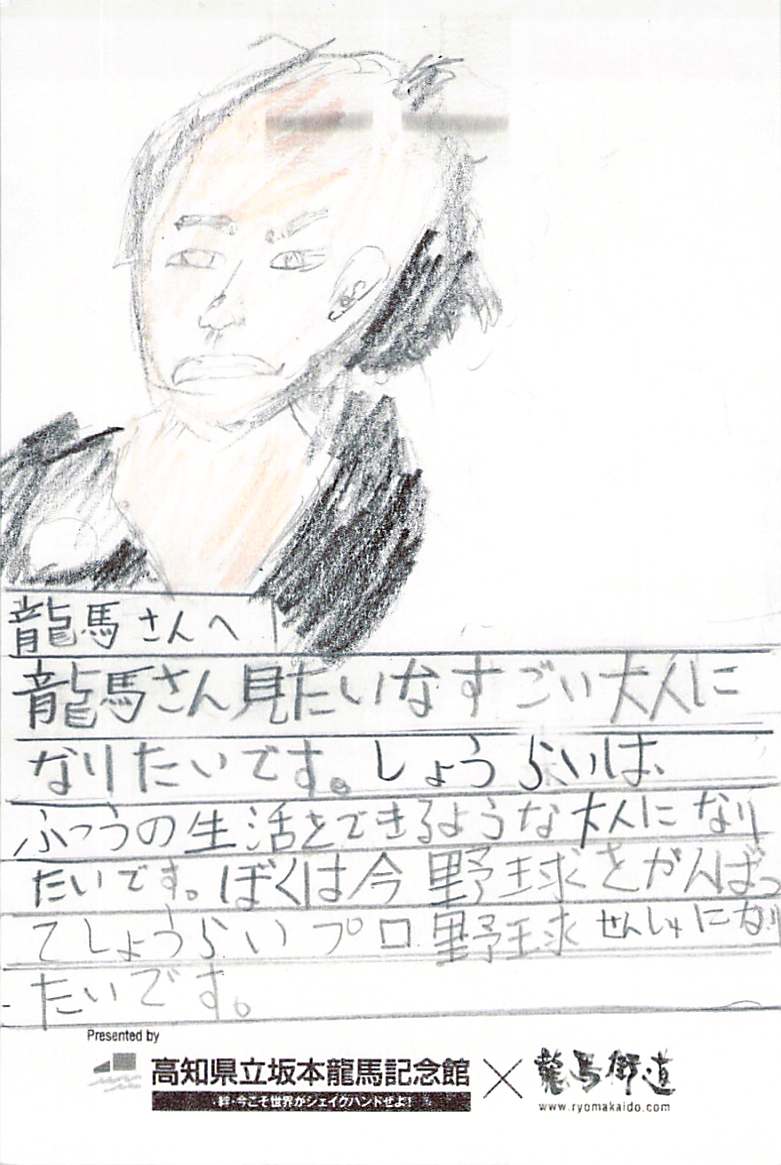 龍馬さんへ
龍馬さん見たいなすごい大人に
なりたいです。しょうらいは、
ふつうの生活をできるような大人になり
たいです。ぼくは今野球をがんばっ
てしょうらいプロ野球せんしゅになり
たいです。
Presented by
高知県立坂本龍馬記念館
絆・今こそ世界がシェイクハンドぜよ!
×
龍馬街道
www.ryomakaido.com